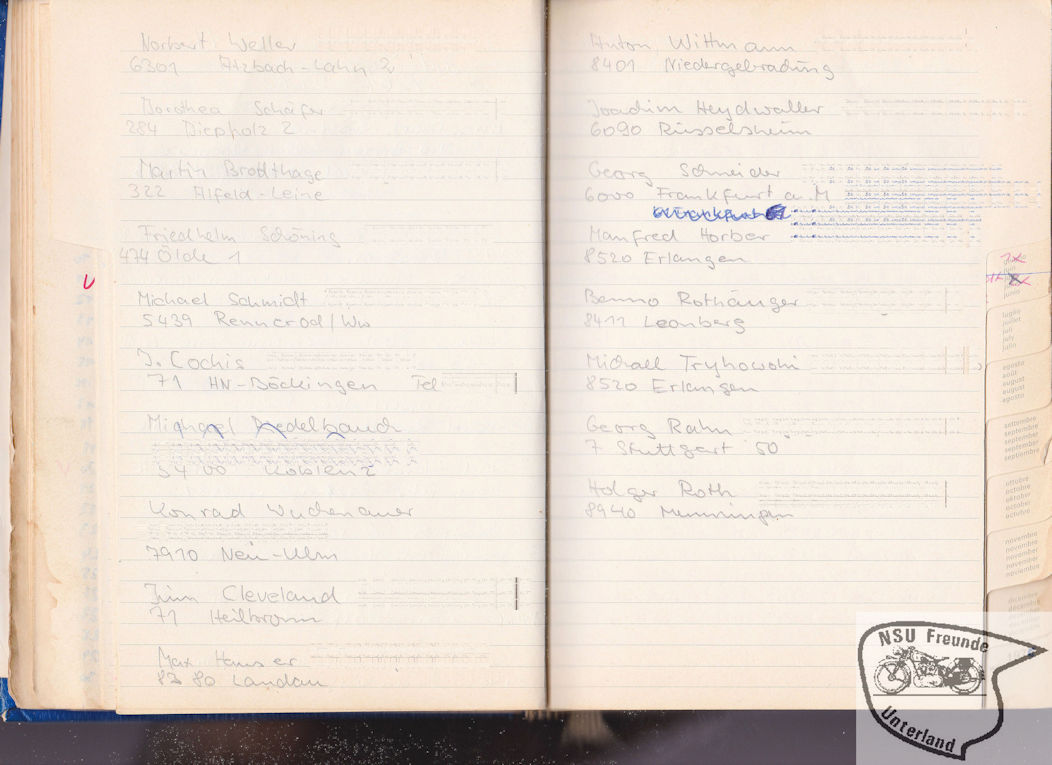 Norbert Weller
6301 Atzbach-Lahn 2
Dorothea Schäfer
284 Diepholz 2
Martin Brodthage
322 Alfeld-Leine
Friedhelm Schöning
474 Ölde 1
Michael Schmidt
5439 Rennerod/Ww
J. Cochis
71 HN-Böckingen Tel
Michael
5400 Koblenz
Konrad Wuchenauer
7910 Neu-Ulm
Jim Cleveland
71 Heilbronn
Max
8380 Landau
Anton Wittmann
8401 Niedergebrading
Joachim Heydwaller
6090 Rüsselsheim
Georg Schneider
6000 Frankfurt a. M
Manfred Horber
8520 Erlangen
Benno Rothänger
8411 Leonberg
Michael Tryhowski
8520 Erlangen
Georg Rahn
7 Stuttgart 50
Holger Roth
8940 Memmingen
junio
luglio
juillet
juli
july
julio
agosto
août
august
august
agosto
settembre
septembre
september
september
septiembre
ottobre
octobre
oktober
october
octubre
novembre
novembre
november
november
noviembre
dicembre
décembre
NSU Freunde
Unterland